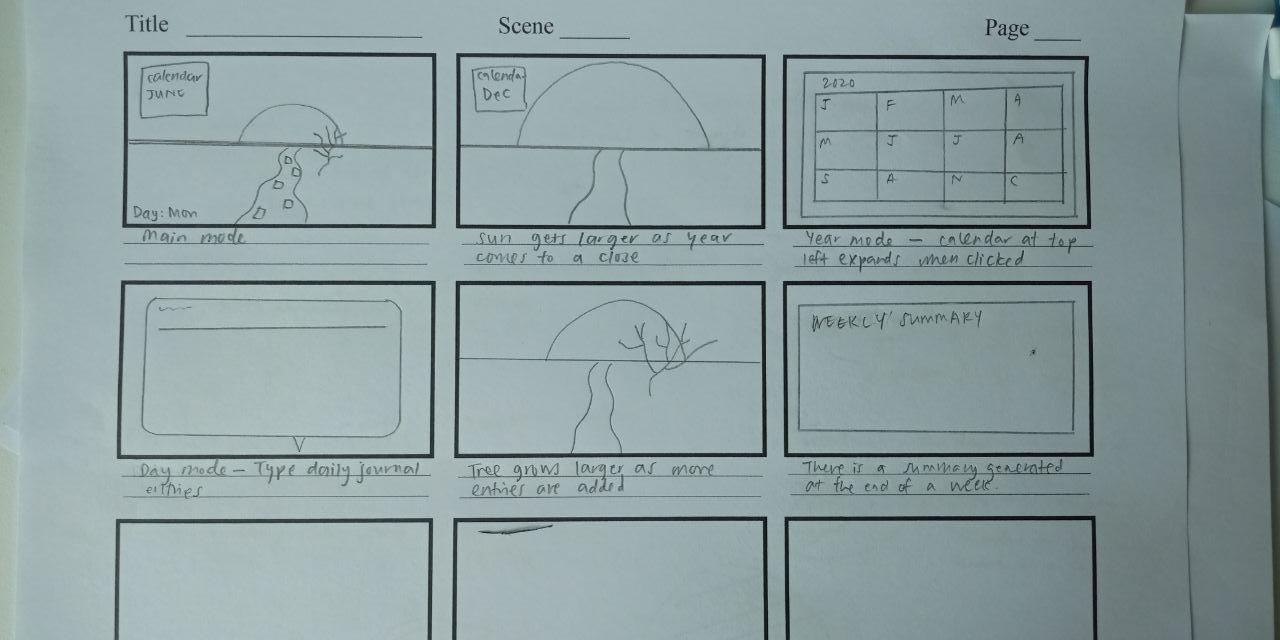 Title
Scene
Page
calendar
JUNE
Day: Mon
Main mode
calenda
Dec
Sun gets larger as year
comes to a close
2020
J F M A
M J J A
S A N C
Year mode — calendar at top
left expands when clicked
Day mode — Type daily journal
entries
Tree grows larger as more
entries are added
WEEKLY SUMMARY
There is a summary generated
at the end of a week.